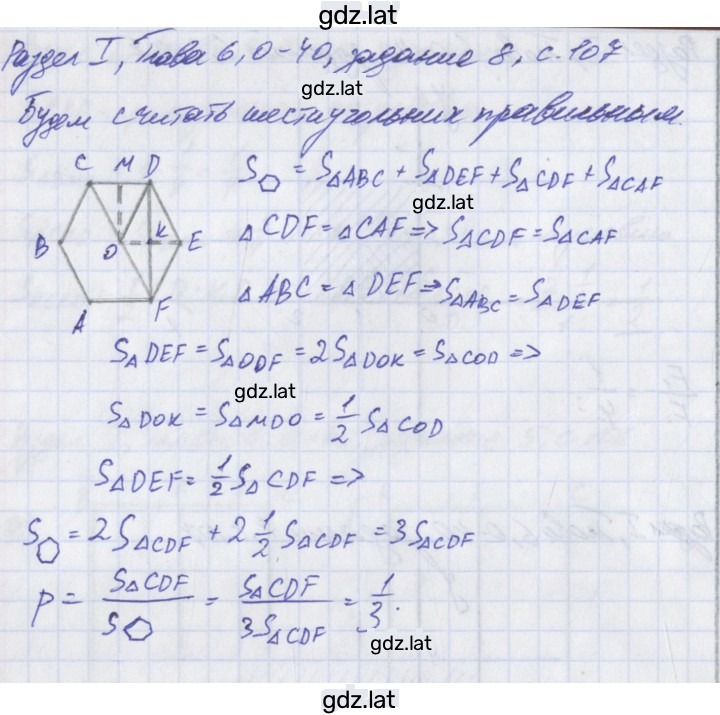 gdz.lat
Раздел I, Глава 6, О-40, задание 8, с. 107
gdz.lat
Будем считать шестиугольник правильным.
C M D
B O K E
A F
S⬡ = S△ABC + S△DEF + S△CDF + S△CAF
gdz.lat
△CDF = △CAF => S△CDF = S△CAF
△ABC = △DEF => S△ABC = S△DEF
S△DEF = S△ODF = 2S△DOK = S△COD =>
gdz.lat
S△DOK = S△MDO = 1/2 S△COD
S△DEF = 1/2 S△CDF =>
S⬡ = 2S△CDF + 2 1/2 S△CDF = 3S△CDF
P = S△CDF / S⬡ = S△CDF / 3S△CDF = 1/3.
gdz.lat
gdz.lat